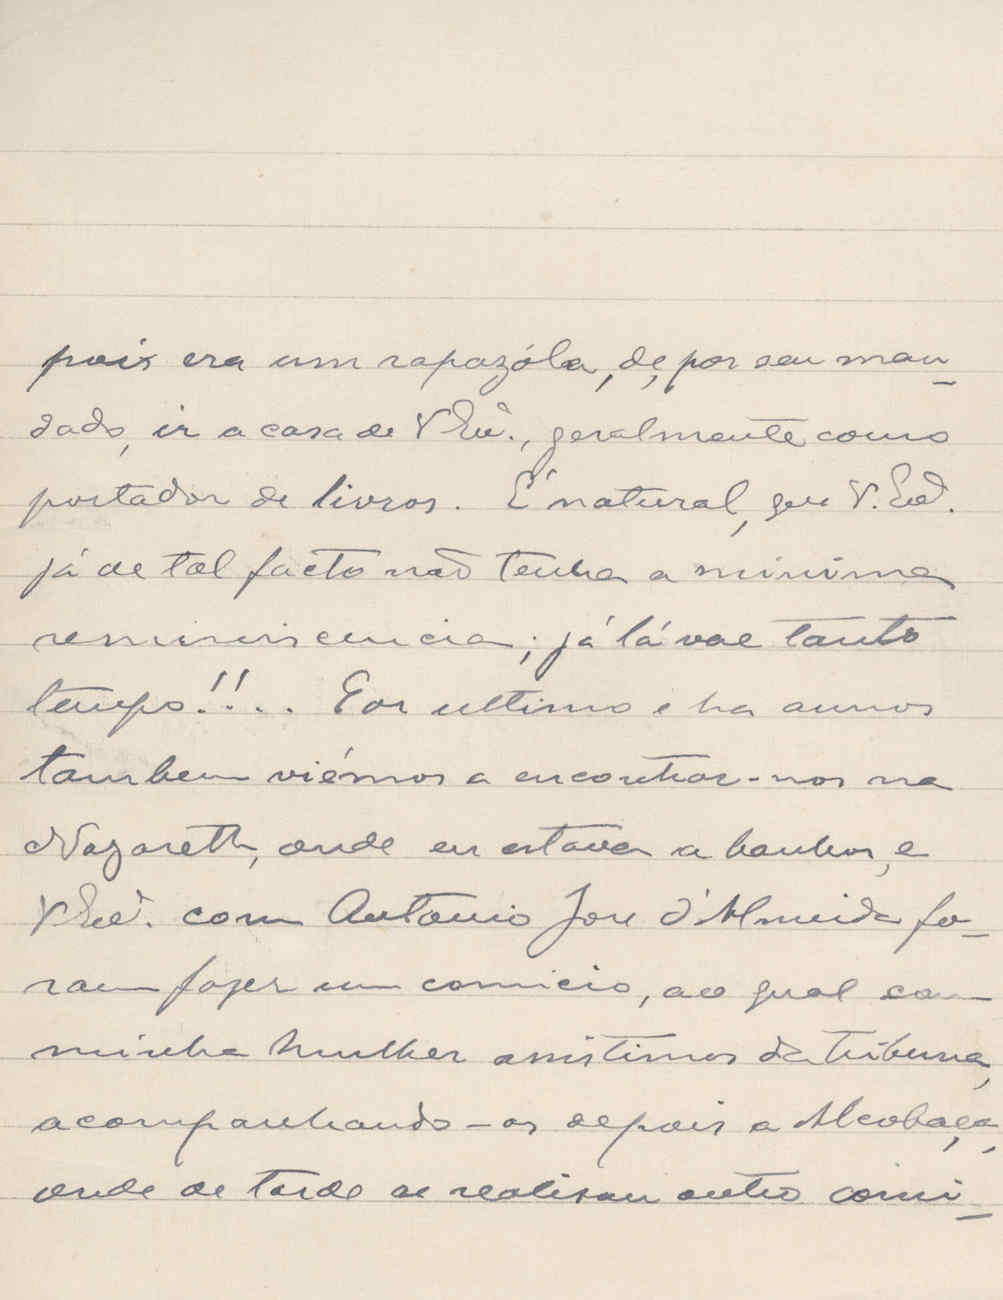 pois era um rapazóla, de, por seu man-
dado, ir a casa de V. Exª., geralmente como
portador de livros. É natural, que V. Exª.
já de tal facto não tenha a minima
reminiscencia; já lá vae tanto
tempo!!.. Por ultimo e ha annos
tambem viémos a encontrar-nos na
Nazareth, onde eu estava a banhos, e
V. Exª. com Antonio José d'Almeida fo-
ram fazer um comicio, ao qual com
minha mulher assistimos da tribuna,
acompanhando-os depois a Alcobaça,
onde de tarde se realisou outro comi-